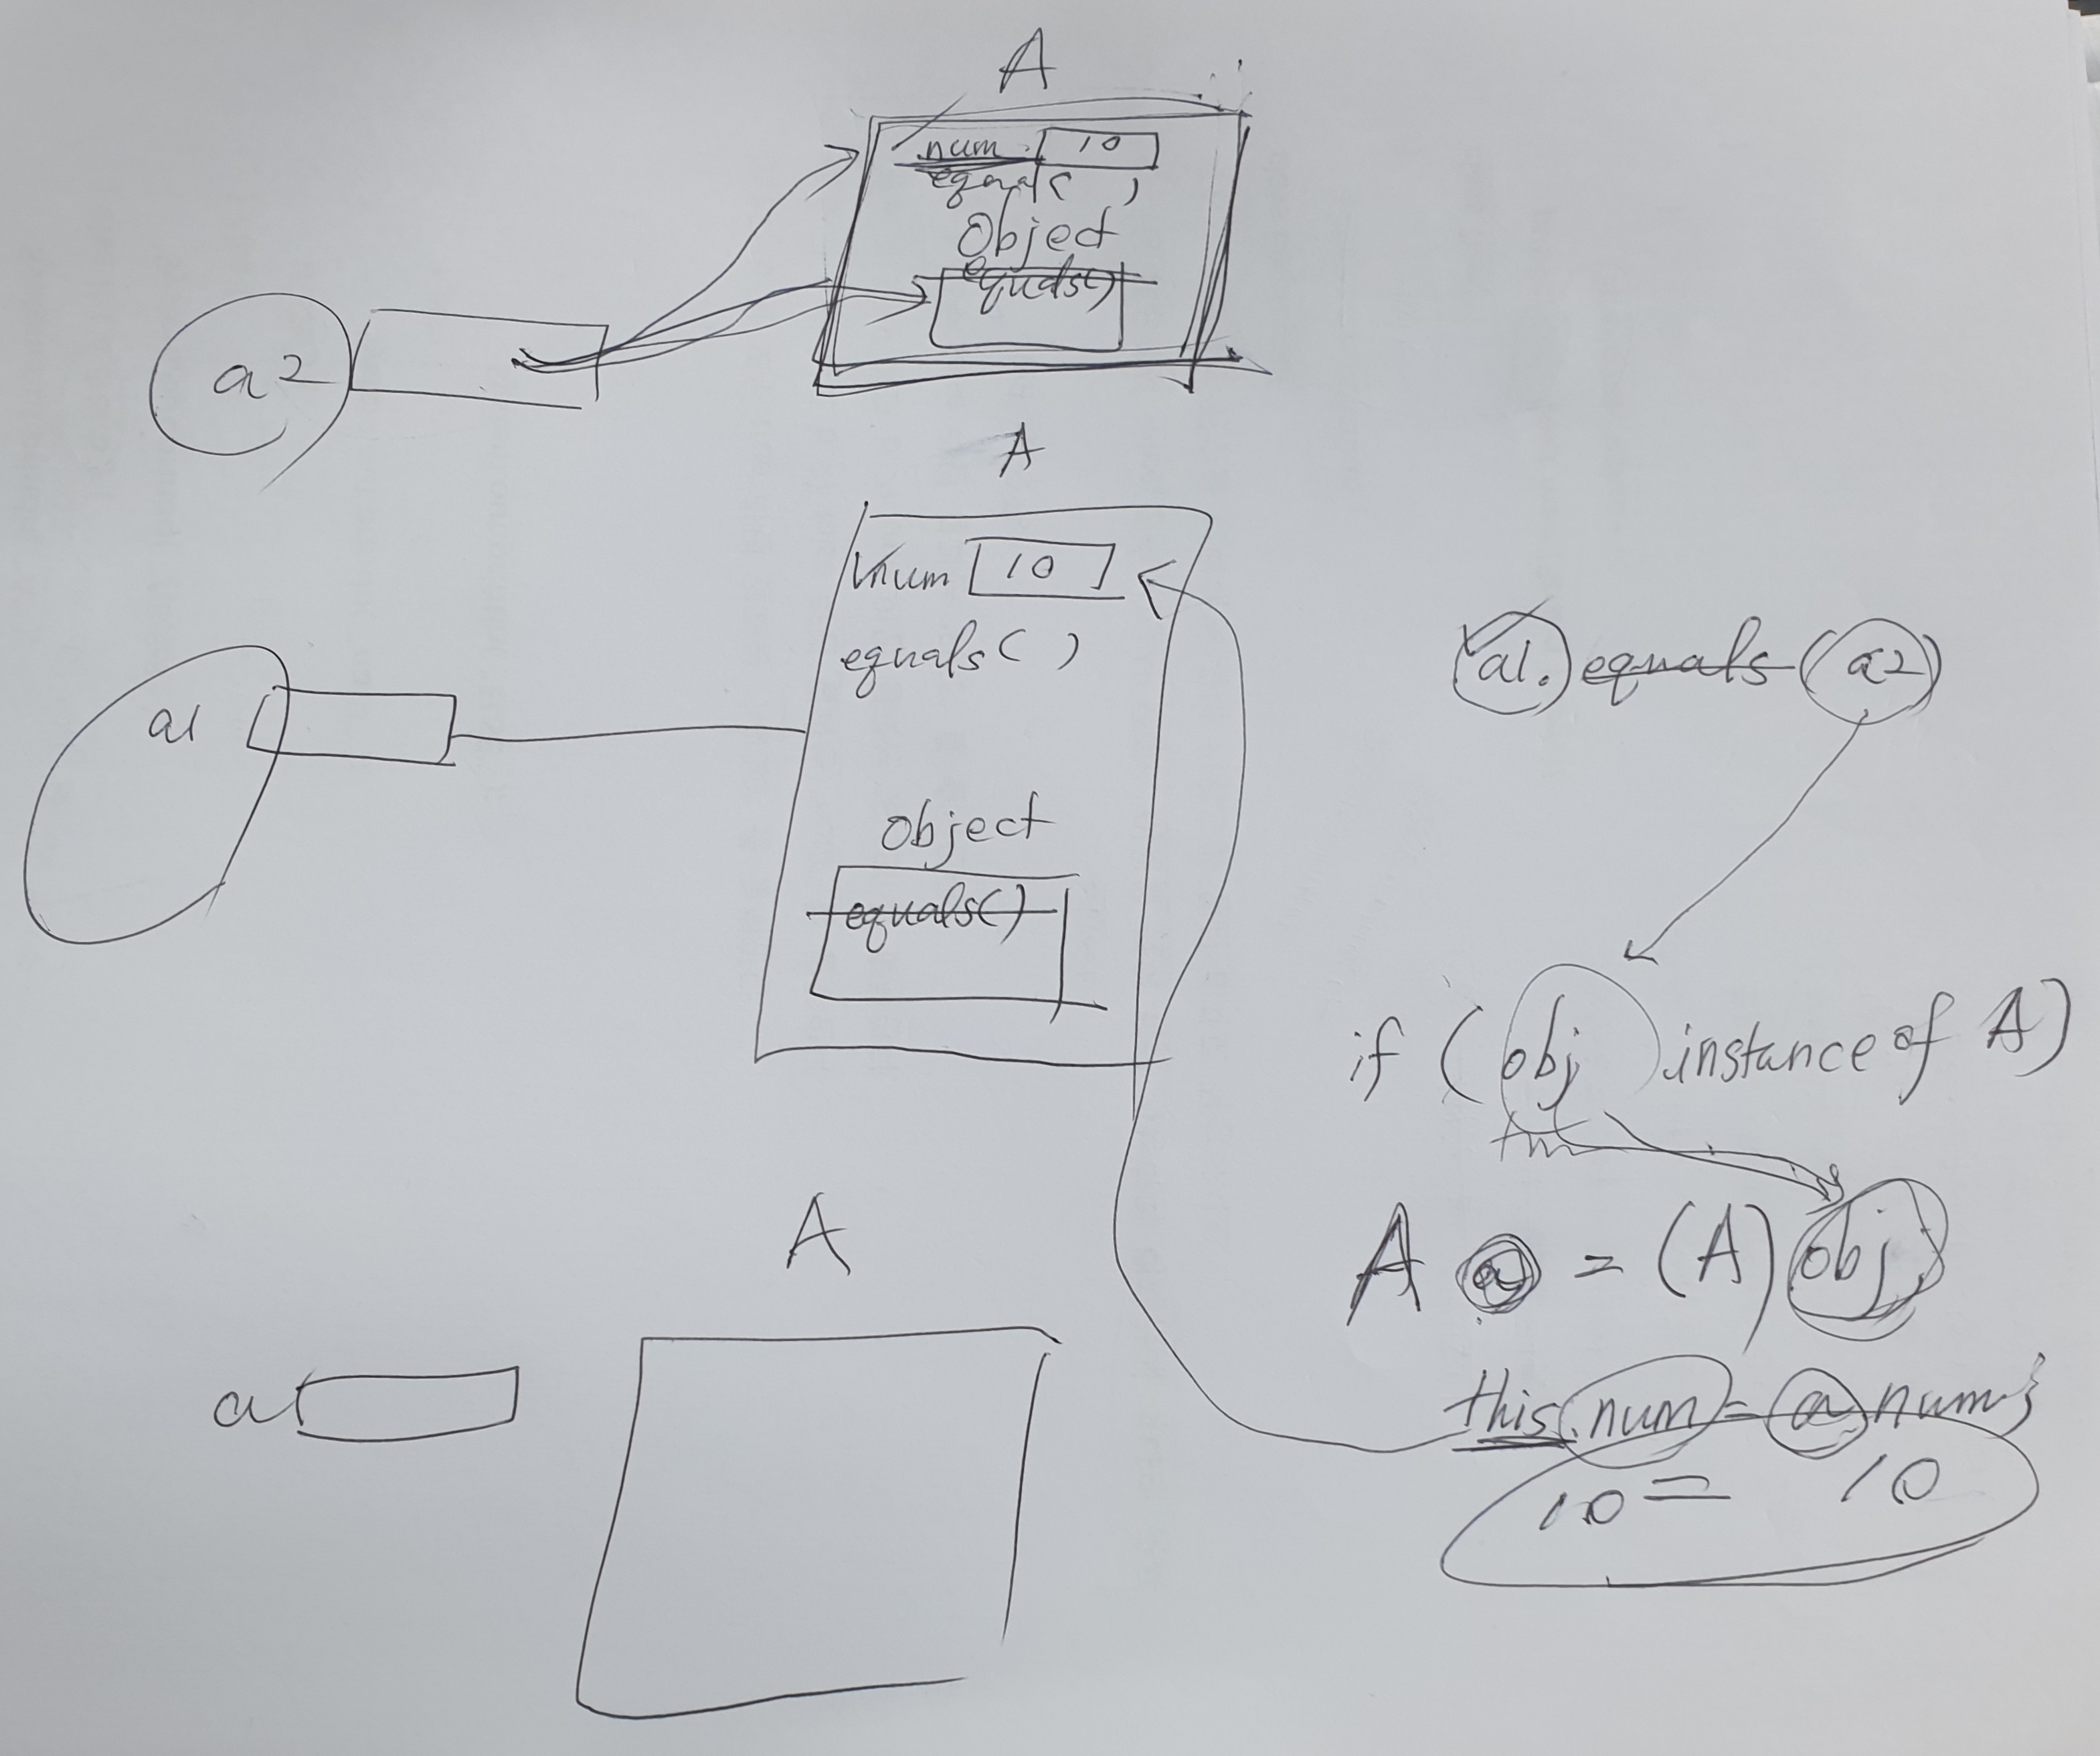 A
num 10
equals( )
Object
equals()
a2
A
num 10
equals( )
a1
Object
equals()
A
a
a1. equals (a2)
if (obj instance of A)
A a = (A) obj;
this.num = a num;
10 = 10